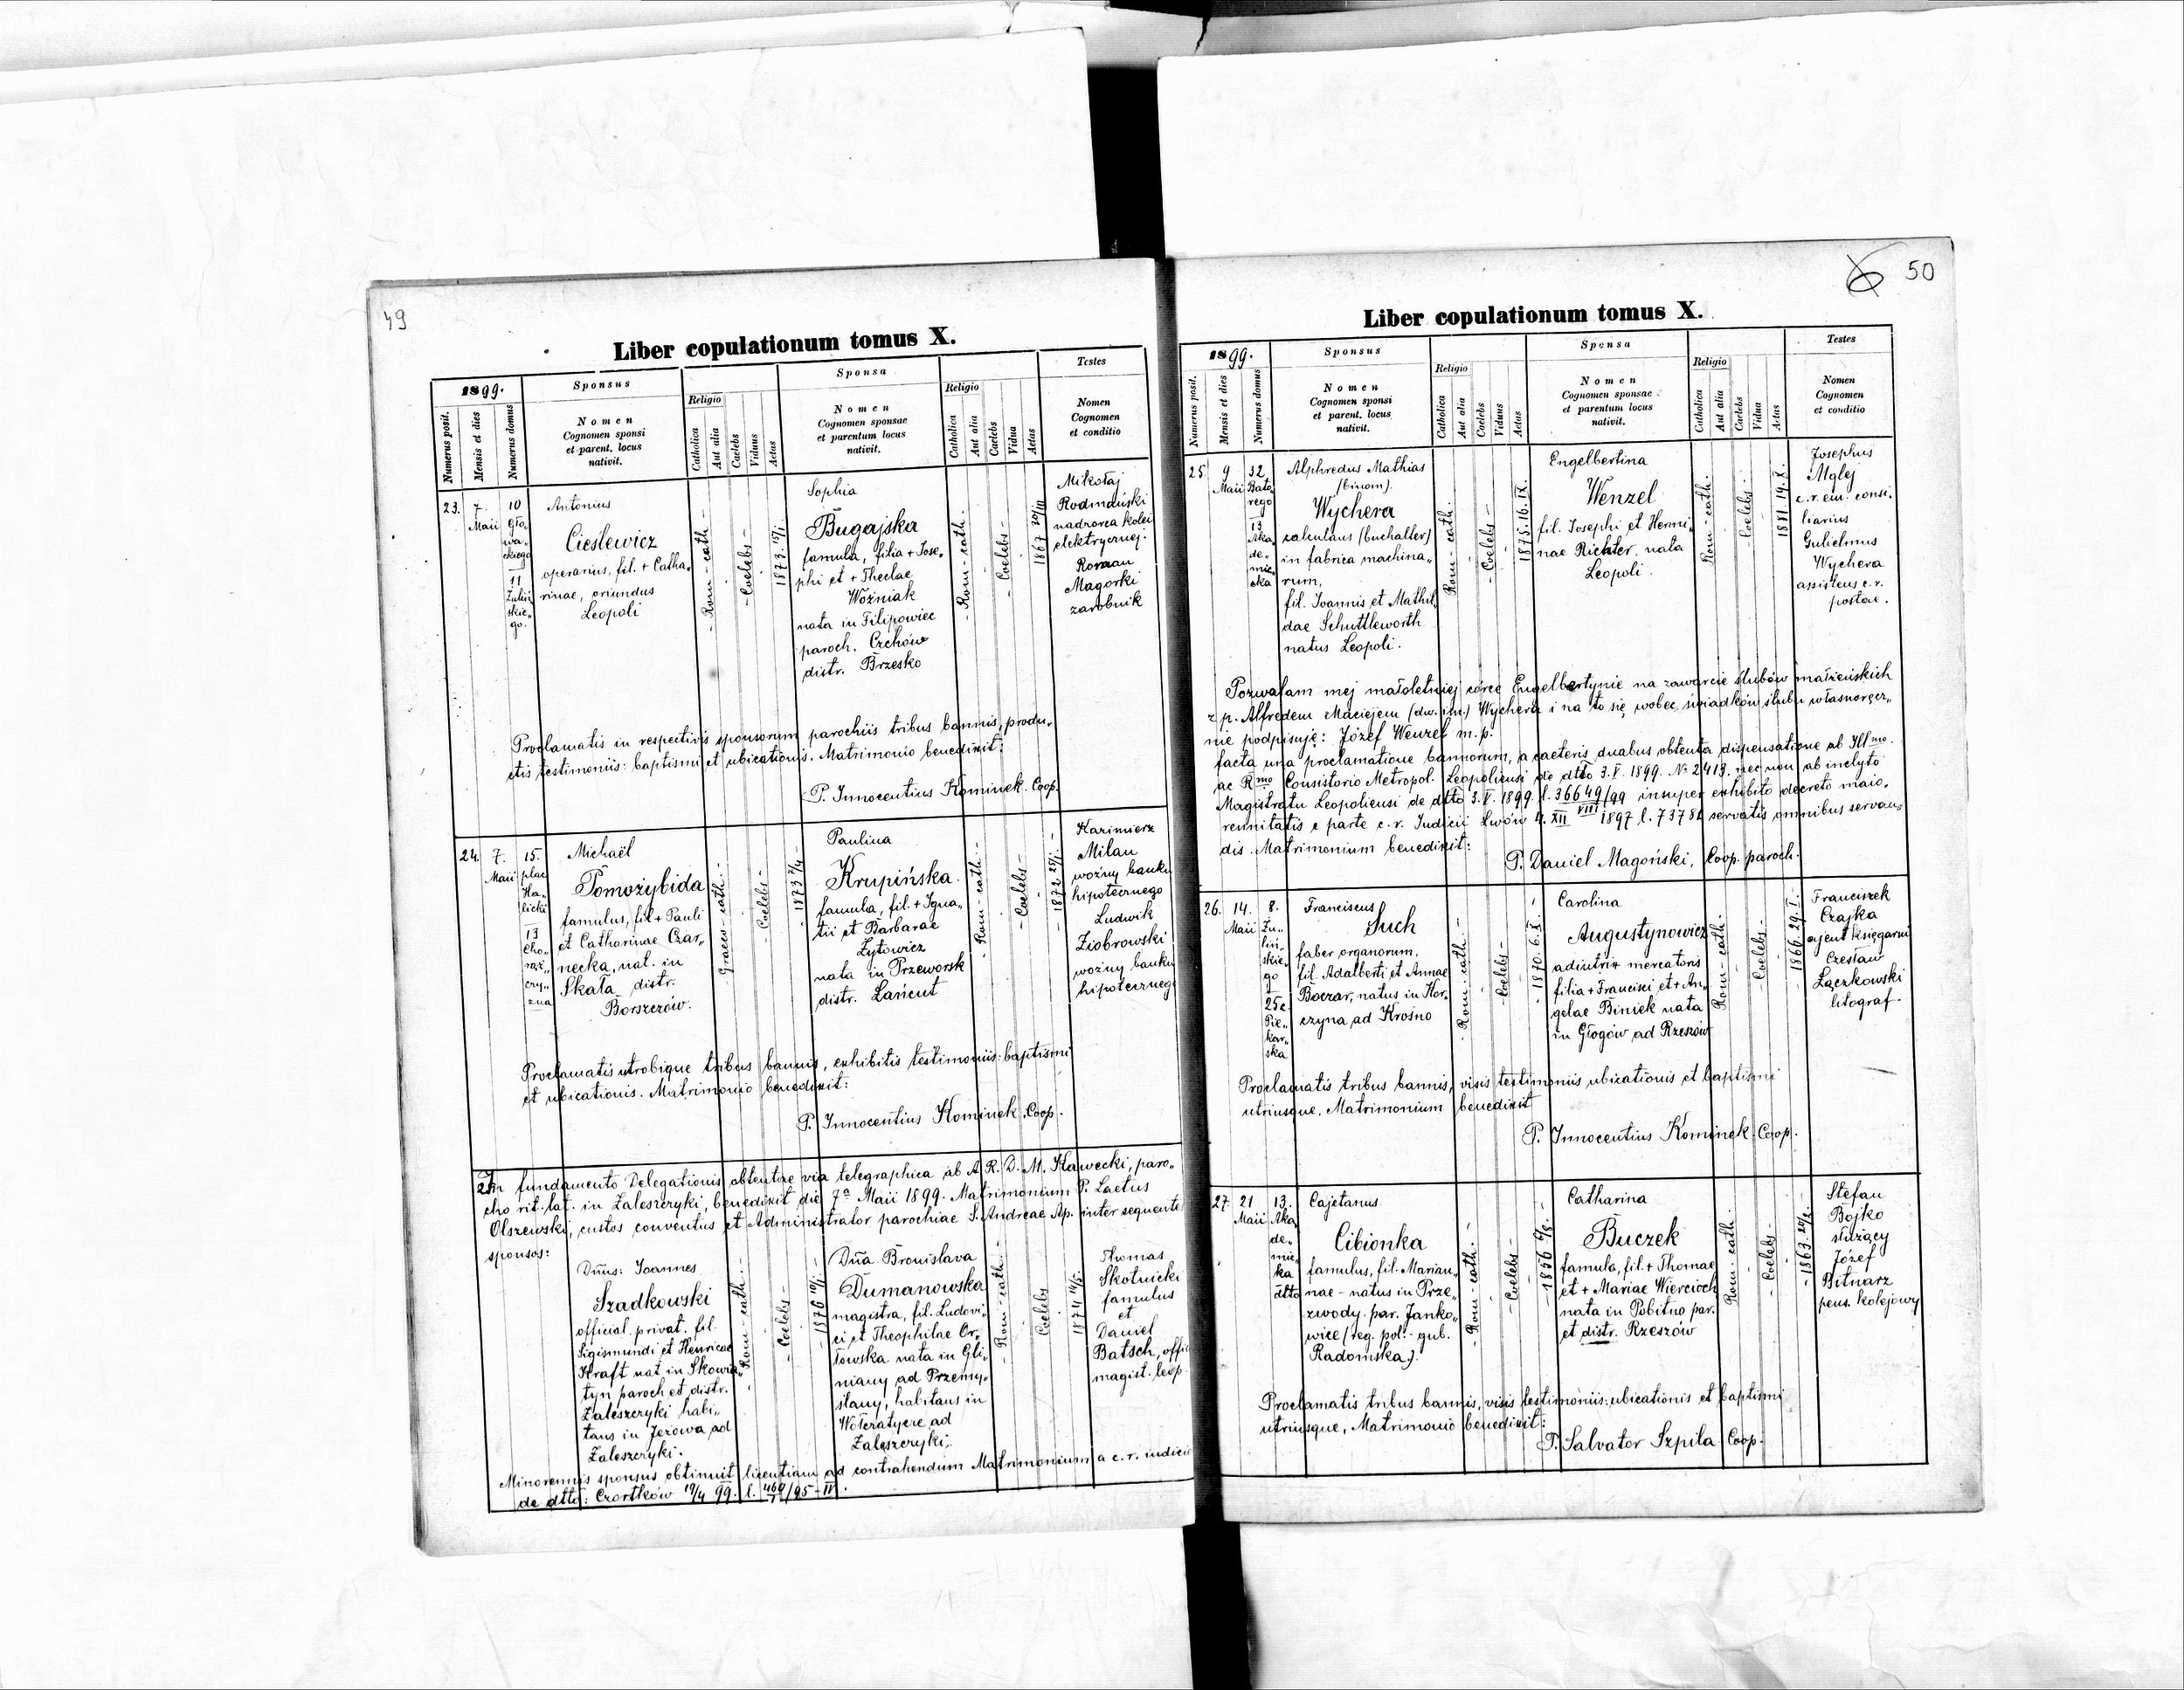 49
Liber copulationum tomus X.
1899.
Numerus posit.
Mensis et dies
Numerus domus
Sponsus
Nomen
Cognomen sponsi
et parent. locus
nativit.
Religio
Catholica
Aut alia
Caelebs
Viduus
Aetas
Sponsa
Nomen
Cognomen sponsae
et parentum locus
nativit.
Religio
Catholica
Aut alia
Caelebs
Vidua
Aetas
Testes
Nomen
Cognomen
et conditio
23.
7.
Maii
10
Gło„
wa„
ckiego
11
Żuliń
skie„
go.
Antonius
Cieślewicz
operarius, fil. + Catha„
rinae, oriundus
Leopoli
- Rom-cath -
- Coelebs -
1873
Sophia
Bugajska
famula, filia + Jose„
phi et + Theclae
Woźniak
nata in Filipowiec
paroch. Czchów
distr. Brzesko
- Rom-cath. -
- Coelebs -
1867
Mikołaj
Rodmański
nadzorca kolei
elektrycznej.
Roman
Magorki
zarobnik
Proclamatis in respectivis sponsorum parochiis tribus bannis, produ„
ctis testimoniis: baptismi et ubicationis. Matrimonio benedixit:
P. Innocentius Kominek. Coop.
24.
7.
Maii
15.
plac
Ha„
licki
13
Cho„
rąż„
czy„
zna
Michaël
Pomożybida
famulus, fil + Pauli
et Catharinae Czar„
necka, nat. in
Skała distr.
Borszczów.
Graeco-cath. -
- Coelebs -
- 1873
Paulina
Krupińska.
famula, fil. + Igna„
tii et Barbarae
Zytowicz
nata in Przeworsk
distr. Łańcut
- Rom-cath. -
- Coelebs -
- 1872
Kazimierz
Milan
woźny banku
hipotecznego
Ludwik
Ziobrowski
woźny banku
hipoteczneg
Proclamatis utrobique tribus bannis, exhibitis testimoniis: baptismi
et ubicationis. Matrimonio benedixit:
P. Innocentius Kominek. Coop.
In fundamento Delegationis obtentae via telegraphica ab A. R. D. M. Kawecki, paro„
cho rit. lat. in Zaleszczyki, benedixit die 7ª Maii 1899. Matrimonium P. Laetus
Olszewski, custos conventus et Administrator parochiae S. Andreae Ap. inter sequente
sponsos:
Dnus: Joannes
Szadkowski
official. privat. fil.
Sigismundi et Henricae
Kraft nat in Skowia„
tyn paroch et distr.
Zaleszczyki habi„
tans in Jezowa ad
Zaleszczyki.
- Rom-cath. -
- Coelebs -
- 1876
Dna Bronislava
Dumanowska
magistra, fil. Ludovi„
ci et Theophilae Or„
łowska nata in Gli„
niany ad Przemy„
ślany, habitans in
ad
Zaleszczyki.
- Rom-cath. -
Coelebs
1874
Thomas
Skotnicki
famulus
et
Daniel
Batsch, offic
magist. leop
Minorennis sponsus obtinuit licentiam ad contrahendum Matrimonium a c. r. iudicio
de dtto: Czortków 19/4 99. l. /95-IV.
50
Liber copulationum tomus X.
1899.
Numerus posit.
Mensis et dies
Numerus domus
Sponsus
Nomen
Cognomen sponsi
et parent. locus
nativit.
Religio
Catholica
Aut alia
Caelebs
Viduus
Aetas
Sponsa
Nomen
Cognomen sponsae
et parentum locus
nativit.
Religio
Catholica
Aut alia
Caelebs
Vidua
Aetas
Testes
Nomen
Cognomen
et conditio
25.
9
Maii
32
Bato„
rego
13
Aka„
de„
mic„
cka
Alphredus Mathias
(binom).
Wychera
calculans (buchalter)
in fabrica machina„
rum,
fil. Joannis et Mathil
dae Schuttleworth
natus Leopoli.
Rom-cath.
- Coelebs -
1875. 16. IX.
Engelbertina
Wenzel
fil. Josephi et Hermi„
nae Richter, nata
Leopoli.
Rom-cath.
- Coelebs -
1881 14. X.
Josephus
Mglej
c. r. em. consi„
liarius
Gulielmus
Wychera
assistens c. r.
postae.
Pozwalam mej małoletniej córce Engelbertynie na zawarcie ślubów małżeńskich
z p. Alfredem Maciejem (dw. im.) Wychera i na to się wobec świadków ślubu własnoręcz„
nie podpisuję: Józef Wenzel m. p.
facta una proclamatione bannorum, a caeteris duabus obtenta dispensatione ab Illmo.
ac Rmo. Consistorio Metropol. Leopoliensi de dtto 3. V. 1899. № 2413. nec non ab inclyto
Magistratu Leopoliensi de dtto 3. V. 1899. l. 36649/99 VIII insuper exhibito decreto maio„
rennitatis e parte c. r. Iudicii Lwów 4. XII 1897 l. 73781 servatis omnibus servan„
dis. Matrimonium benedixit:
P. Daniel Magoński, Coop. paroch.
26.
14.
Maii
8.
Żu„
liń„
skie„
go
25c
Pie„
kar„
ska
Franciscus
Such
faber organorum,
fil. Adalberti et Annae
Boczar, natus in Kor„
czyna ad Krosno
- Rom-cath. -
- Coelebs -
- 1870. 6. X. -
Carolina
Augustynowicz
adiutrix mercatoris
filia + Francisci et + An„
gelae Biniek nata
in Głogów ad Rzeszów
Rom-cath.
- Coelebs -
- 1866. 29. I. -
Franciszek
Czajka
ajent księgarni
Czesław
Łączkowski
litograf.
Proclamatis tribus bannis, visis testimoniis ubicationis et baptismi
utriusque, Matrimonium benedixit
P. Innocentius Kominek Coop.
27.
21
Maii
13.
Aka
de„
mic„
ka
dtto
Cajetanus
Cibionka
famulus, fil. Marian„
nae - natus in Prze„
zwody. par. Janko„
wice (reg. pol. - gub.
Radomska).
- Rom-cath. -
- Coelebs -
- 1856
Catharina
Buczek
famula, fil. + Thomae
et + Mariae Wiercioch
nata in Pobitno par.
et distr. Rzeszów
Rom-cath.
- Coelebs -
- 1863.
Stefan
Bojko
służący
Józef
Bitnarz
pens. kolejowy
Proclamatis tribus bannis, visis testimoniis: ubicationis et baptismi
utriusque, Matrimonio benedixit:
P. Salvator Szpila Coop.